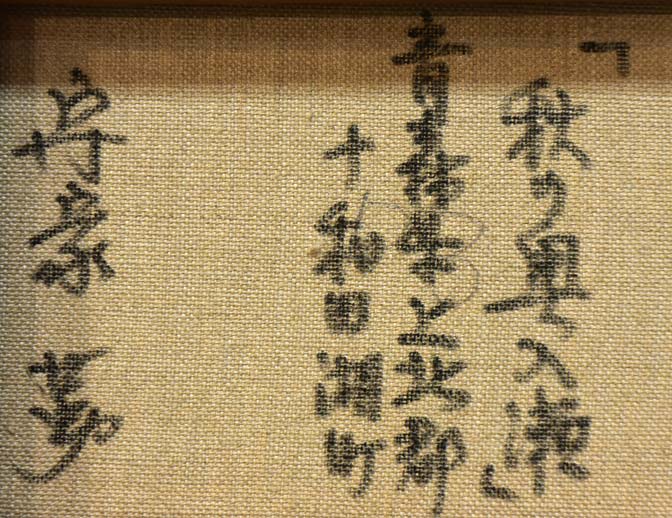 「秋の奥入瀬」
青森県上北郡
十和田湖町
丹家 夢